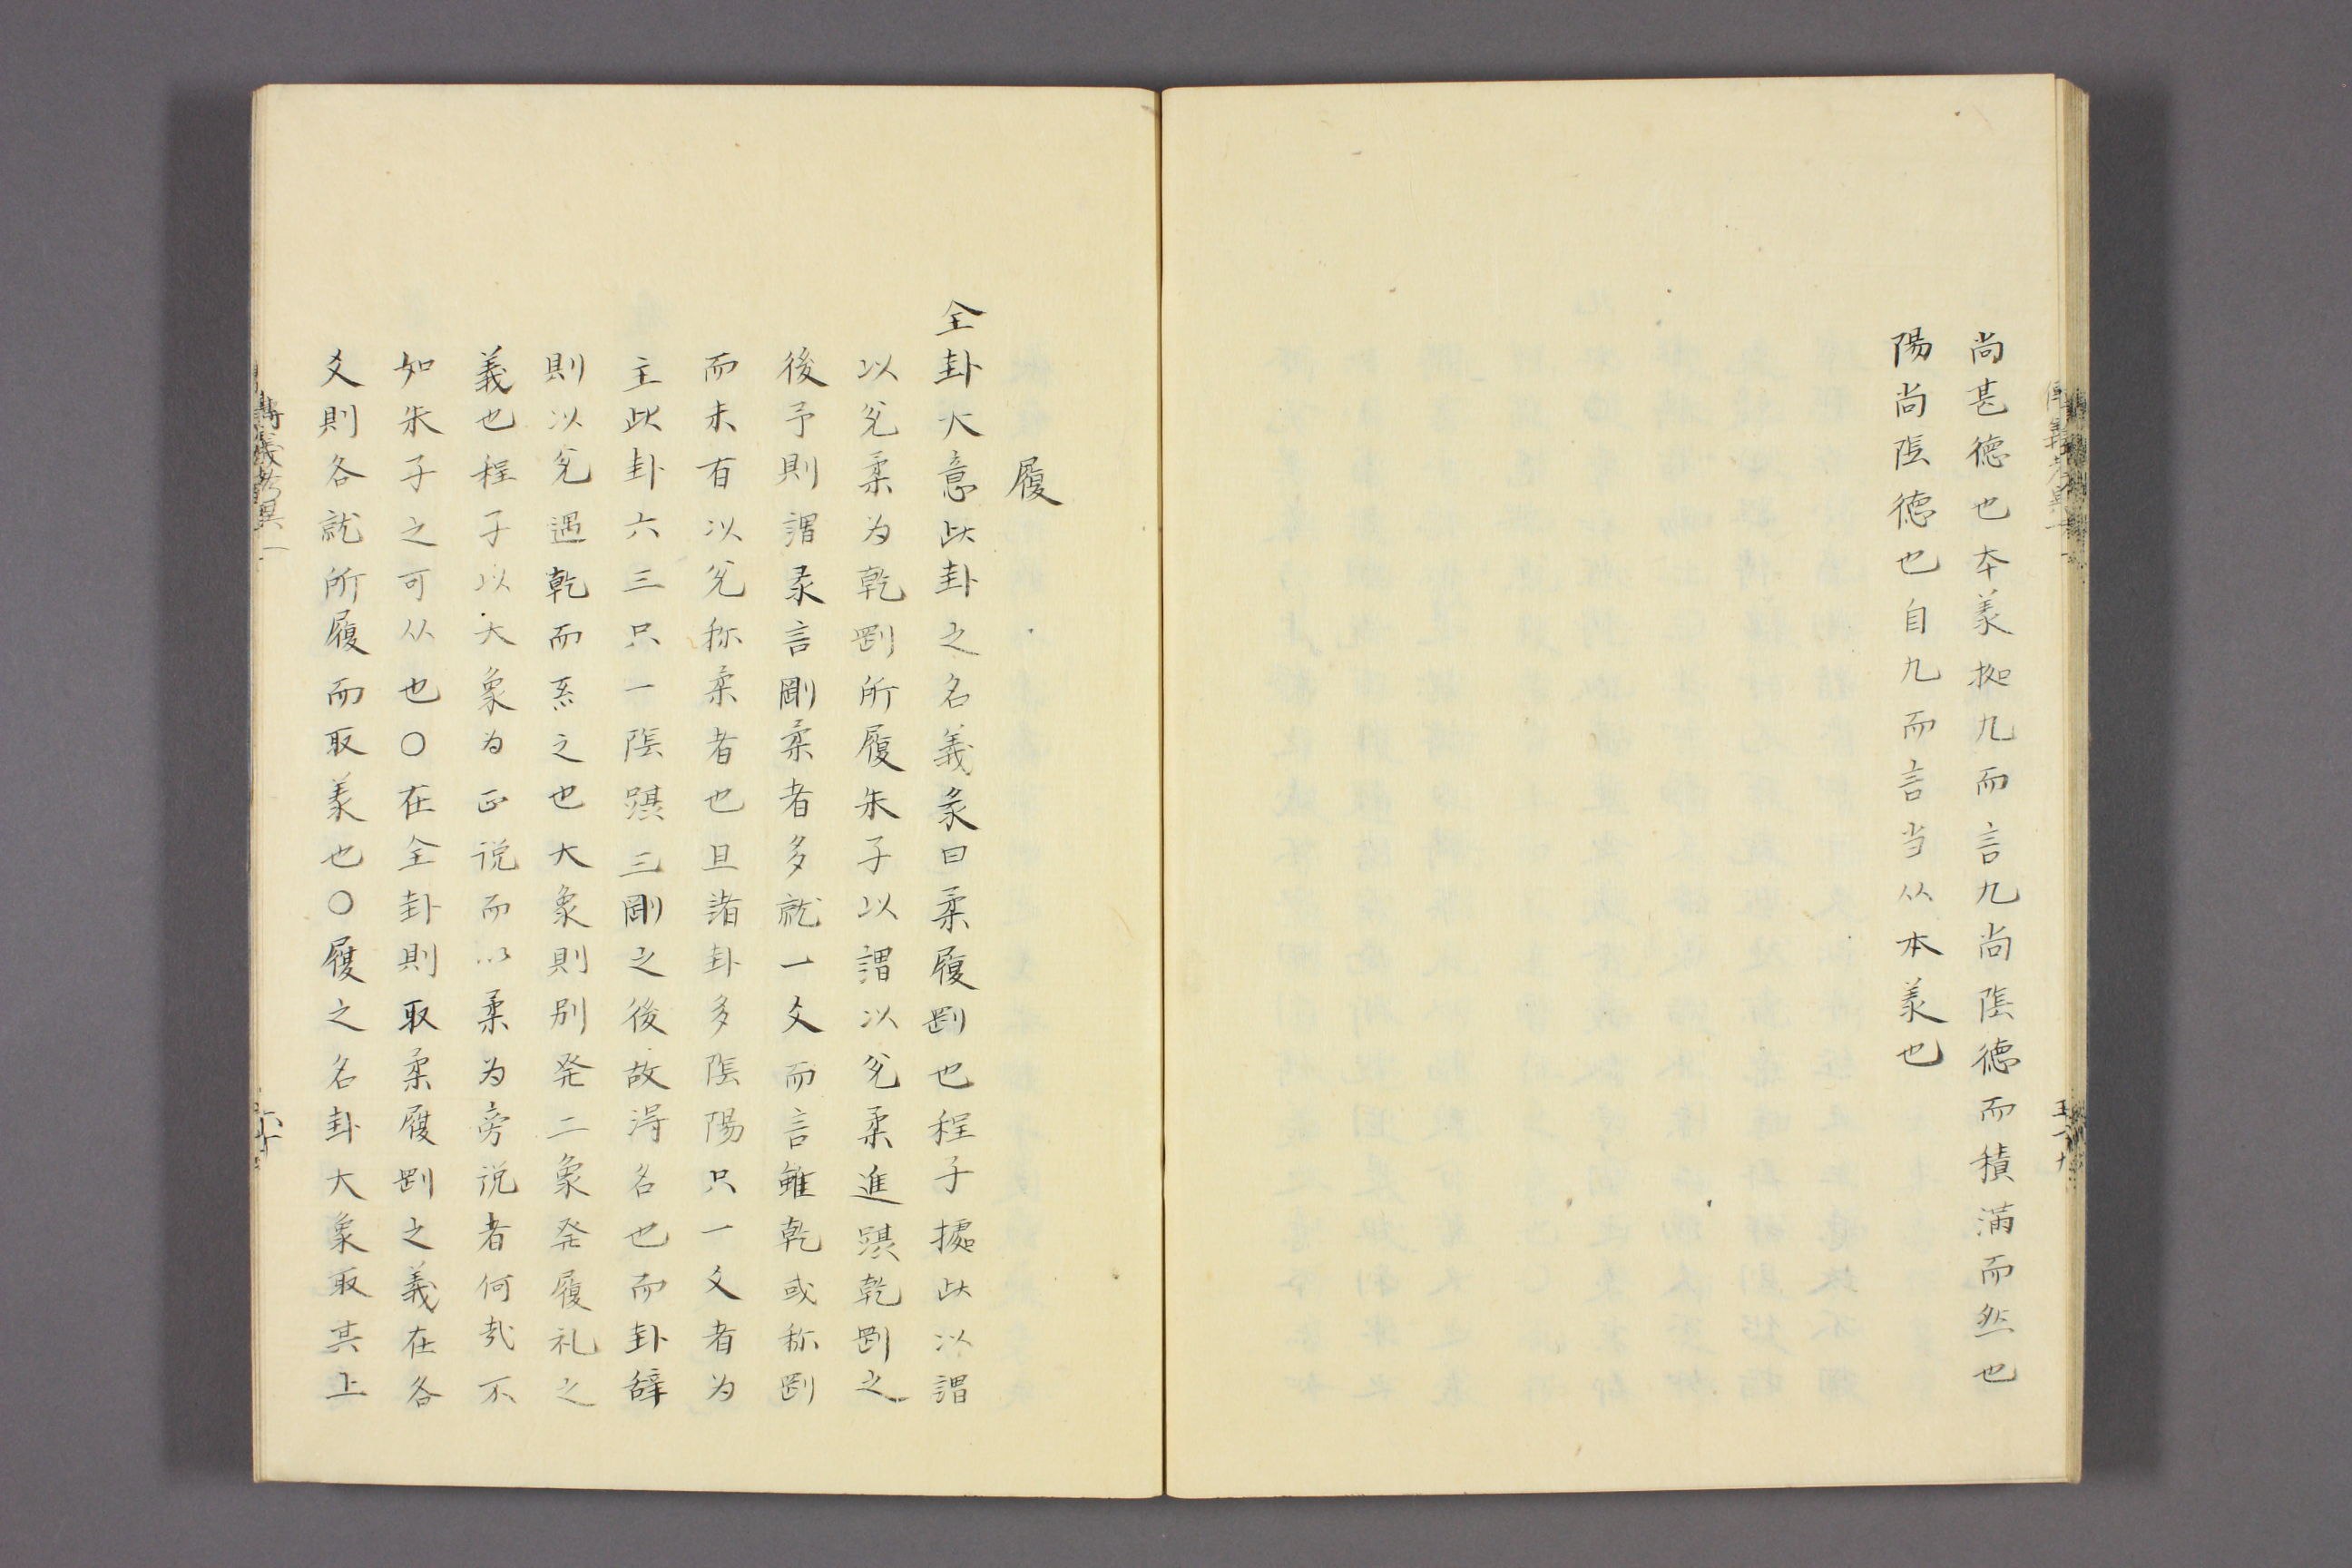 尚甚徳也本義拠九而言九尚陰徳而積満而然也
陽尚陰徳也自九而言当从本義也
履
全卦大意此卦之名義彖曰柔履剛也程子據此以謂
以兌柔为乾剛所履朱子以謂以兌柔進躡乾剛之
後予則謂彖言剛柔者多就一爻而言雖乾或称剛
而未有以兌称柔者也且諸卦多陰陽只一爻者为
主此卦六三只一陰躡三剛之後故得名也而卦辞
則以兌遇乾而系之也大象則別発二象発履礼之
義也程子以大象为正说而以柔为旁说者何㦲不
如朱子之可从也〇在全卦則取柔履剛之義在各
爻則各就所履而取義也〇履之名卦大象取其上